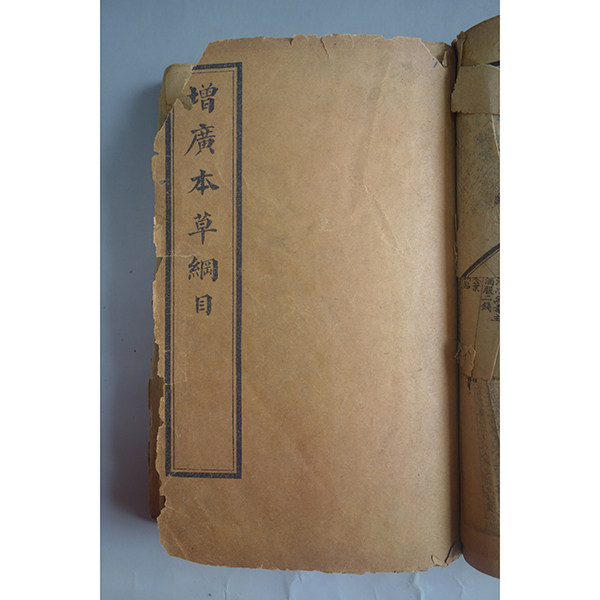 增廣本草綱目